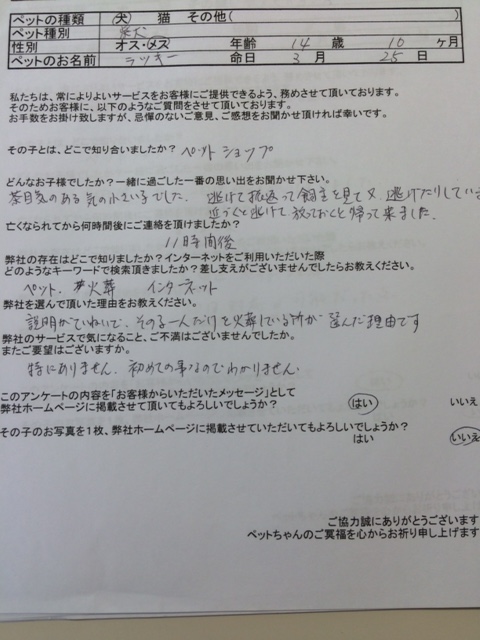 ペットの種類 犬 猫 その他( )
ペット種別 柴犬
性別 オス・メス 年齢 14 歳 10 ヶ月
ペットのお名前 ラッキー 命日 3 月 25 日
私たちは、常によりよいサービスをお客様にご提供できるよう、務めさせて頂いております。
そのためお客様に、以下のようなご質問をさせて頂いております。
お手数をお掛け致しますが、忌憚のないご意見、ご感想をお聞かせ頂ければ幸いです。
その子とは、どこで知り合いましたか? ペットショップ
どんなお子様でしたか?一緒に過ごした一番の思い出をお聞かせ下さい。
茶目気のある気の小さい子でした。 逃げて振返って飼主を見て又、逃げたりしてい
近づくと逃げて放っておくと帰って来ました。
亡くなられてから何時間後にご連絡を頂けましたか?
11時間後
弊社の存在はどこで知りましたか?インターネットをご利用いただいた際
どのようなキーワードで検索頂きましたか?差し支えがございませんでしたらお教えください。
ペット、火葬 インターネット
弊社を選んで頂いた理由をお教えください。
説明がていねいで、その子一人だけを火葬している所が選んだ理由です
弊社のサービスで気になること、ご不満はございませんでしたか。
またご要望はございますか。
特にありません、初めての事なのでわかりません。
このアンケートの内容を「お客様からいただいたメッセージ」として
弊社ホームページに掲載させて頂いてもよろしいでしょうか? はい いいえ
その子のお写真を1枚、弊社ホームページに掲載させていただいてもよろしいでしょうか?
はい いいえ
ご協力誠にありがとうございます
ペットちゃんのご冥福を心からお祈り申し上げます